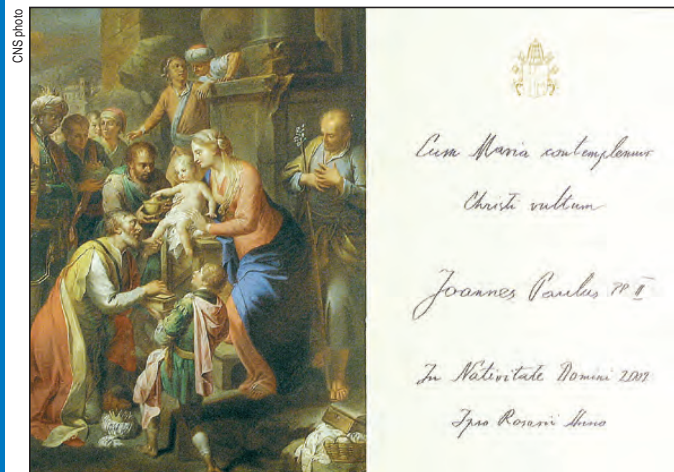 CNS photo
Cum Maria contemplemur
Christi vultum
Joannes Paulus PP II
In Nativitate Domini 2002
Ipso Rosarii Anno